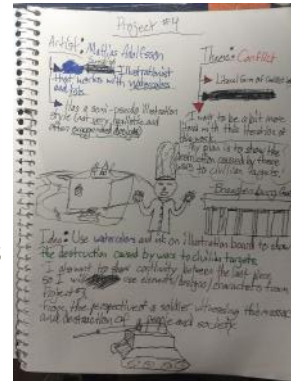 Project #4
Artist: Mattias Adolfsson
Theme: Conflict
Illustrationist
that works with watercolors
and ink.
Literal form of conflict
Has a semi-pseudo illustration
style (not very realistic and
often exaggerated designs)
I want to be a bit more
literal with this iteration of
My plan is to show the
destruction caused by these
to civilian targets.
Brandenburg Gate
Idea: Use watercolors and ink on illustration board to show
the destruction caused by wars to civilian targets
I also want to show continuity between the last piece,
so I will use elements/designs/characters from
Project #3
From the perspective of a soldier witnessing the massacre
and destruction of a people and society.